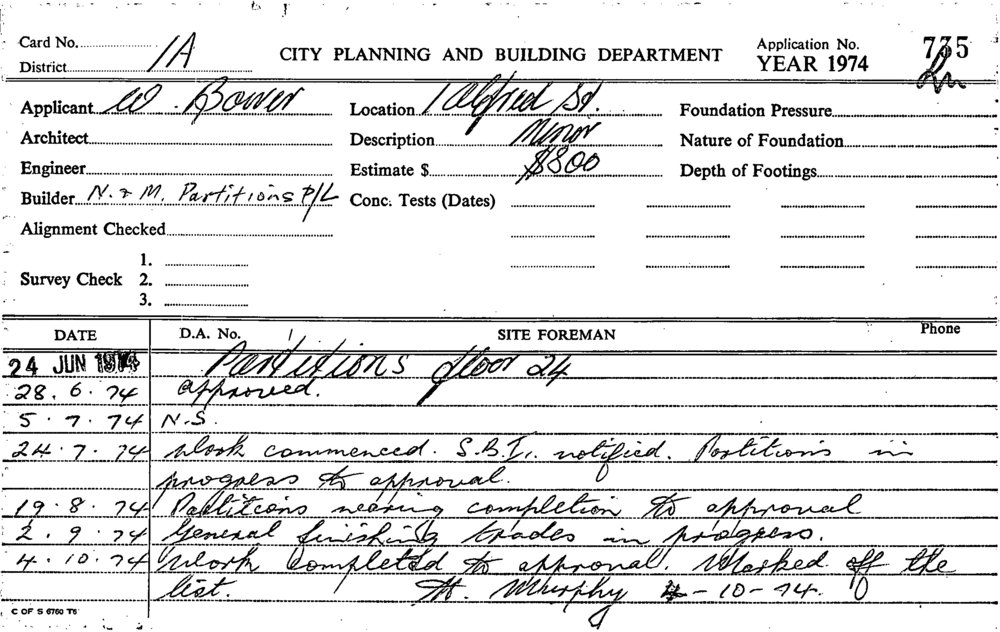 Card No. 1A CITY PLANNING AND BUILDING DEPARTMENT Application No. 735
District YEAR 1974
Applicant W. Bower Location 1 Alfred St. Foundation Pressure
Architect Description Minor Nature of Foundation
Engineer Estimate $ $800 Depth of Footings
Builder N. & M. Partitions P/L Conc. Tests (Dates)
Alignment Checked
1.
Survey Check 2.
3.
DATE D.A. No. / SITE FOREMAN Phone
24 JUN 1974 Partitions floor 24
28. 6. 74 approved.
5. 7. 74 N.S.
24. 7. 74 Work commenced. S.B.I. notified. Partitions in
progress to approval.
19. 8. 74 Partitions nearing completion to approval
2. 9. 74 General finishing trades in progress.
4. 10. 74 Work completed to approval. Marked off the
list. Murphy 4-10-74.
C OF S 6760 T5